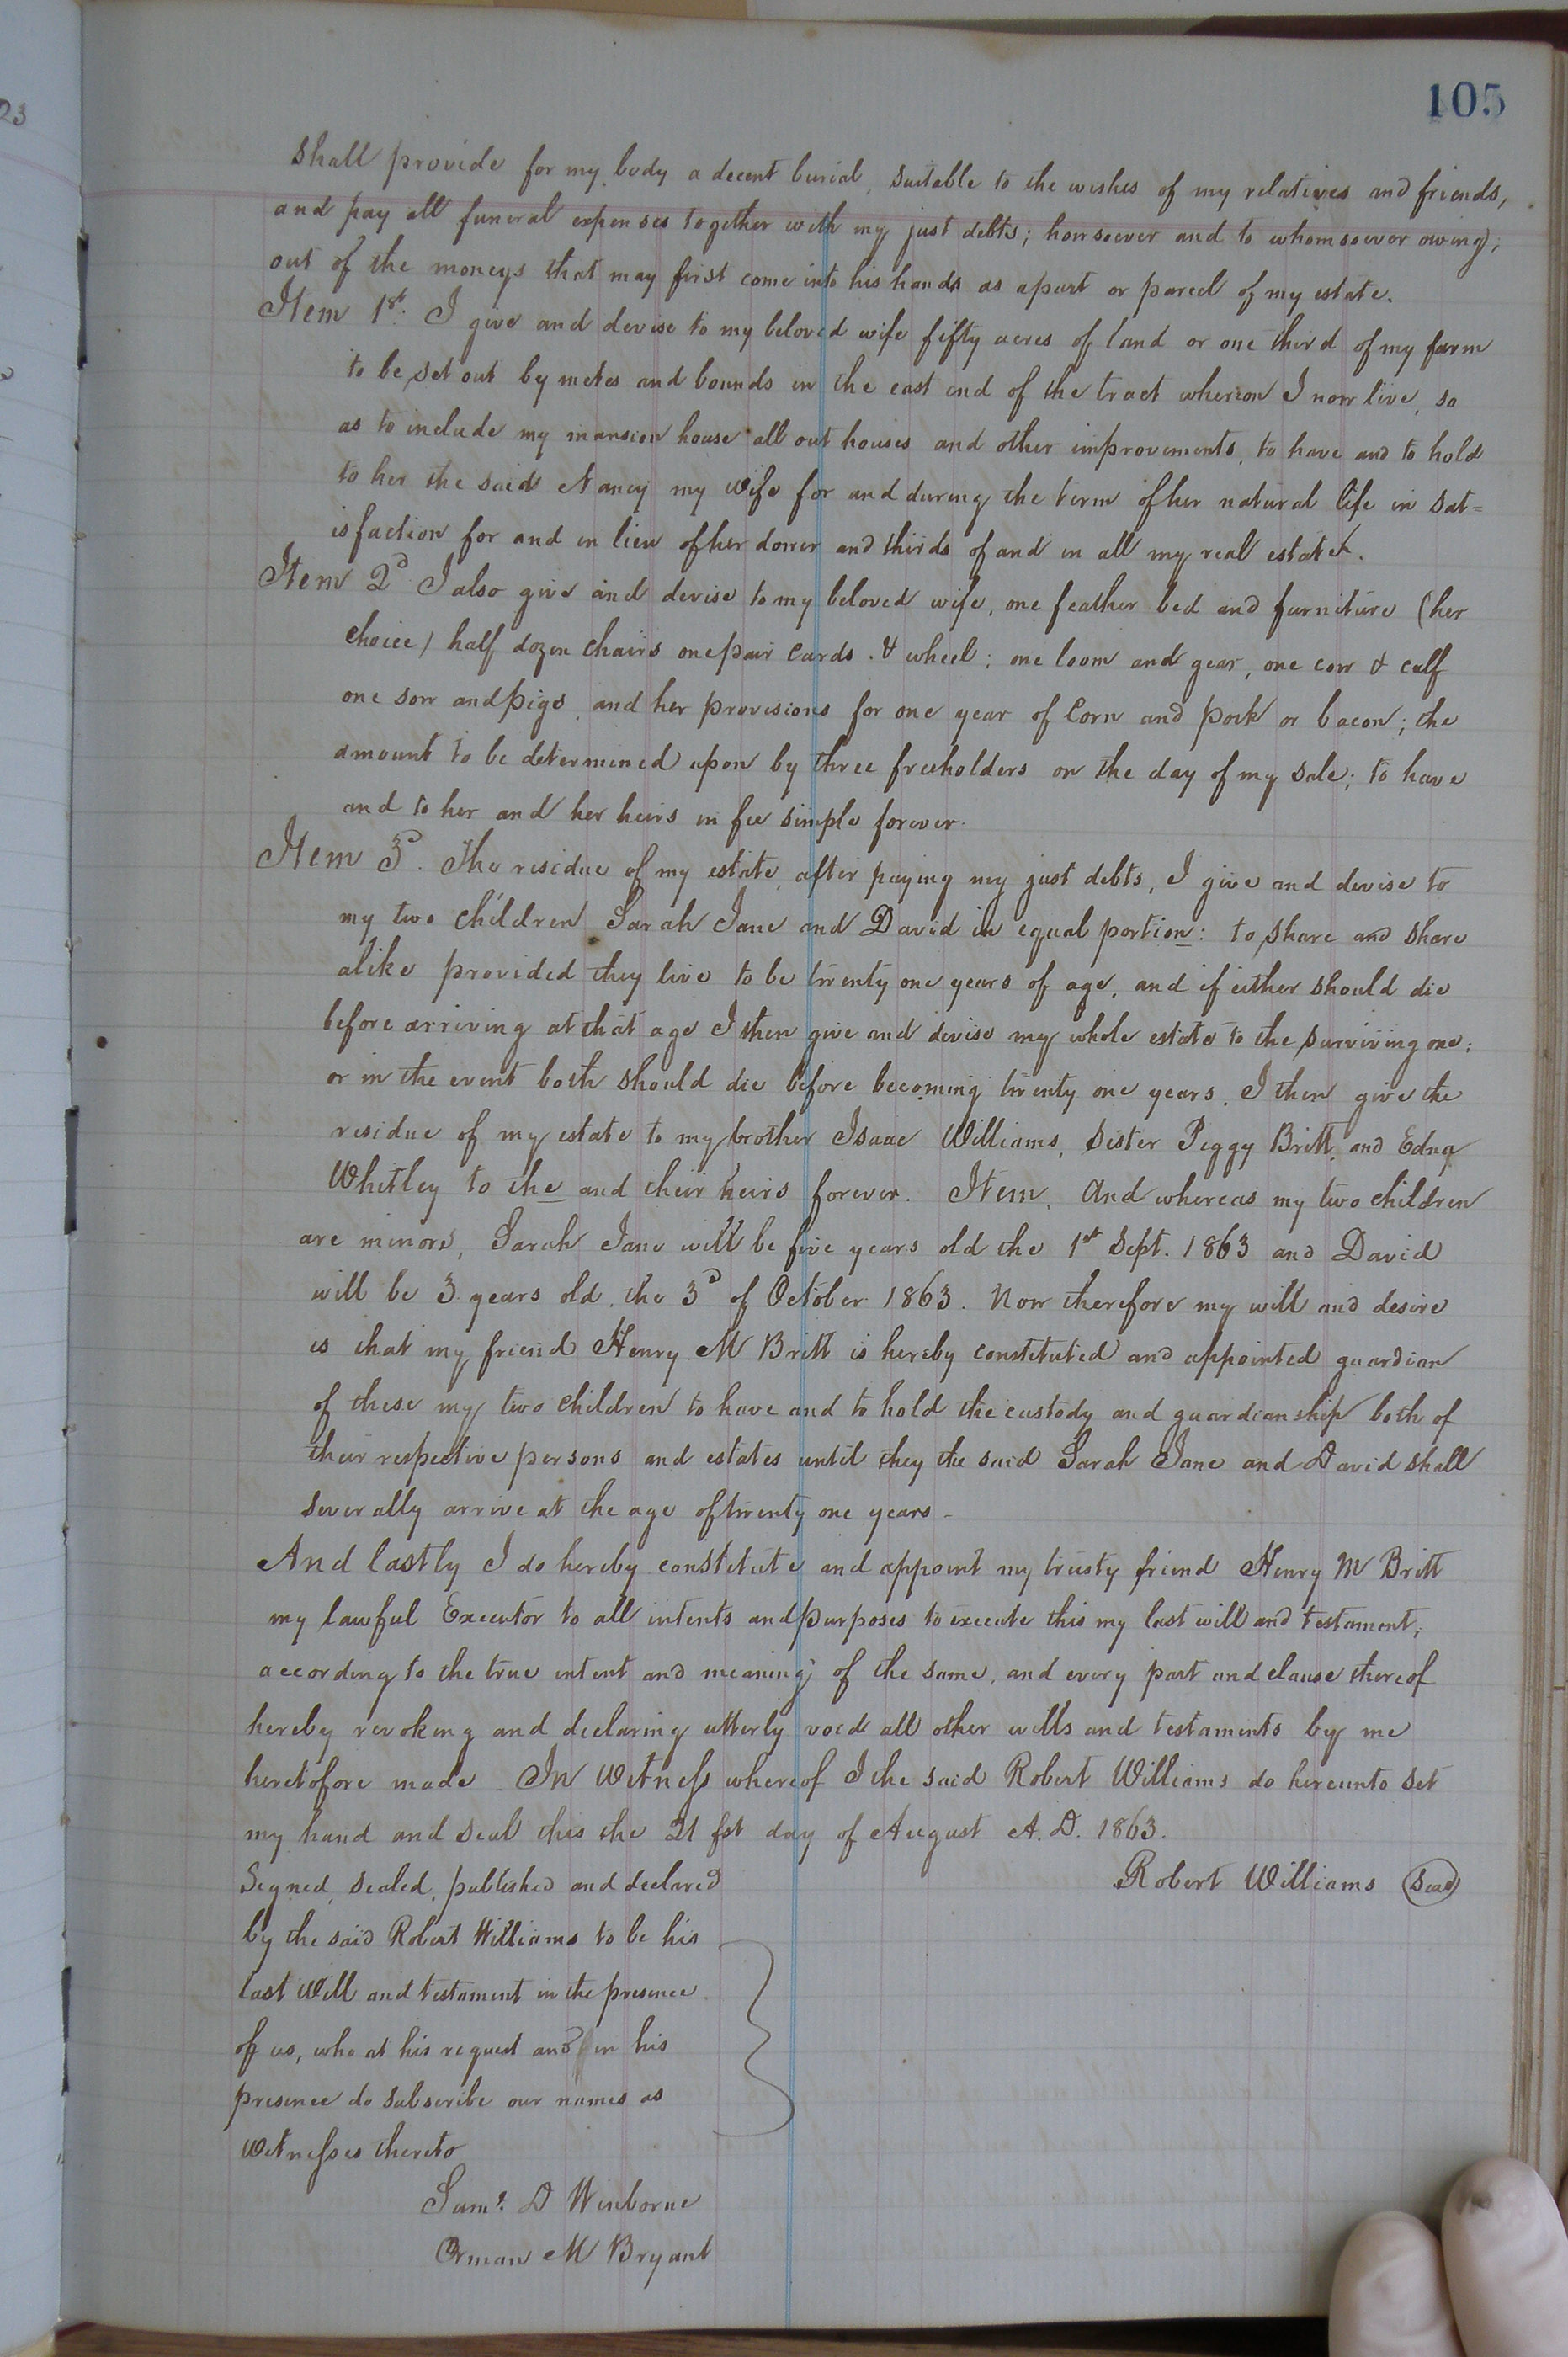 23
105
shall provide for my body a decent burial, suitable to the wishes of my relatives and friends,
and pay all funeral expenses together with my just debts; howsoever and to whomsoever owing;
out of the moneys that may first come into his hands as apart or parcel of my estate.
Item 1st. I give and devise to my beloved wife fifty acres of land or one third of my farm
to be set out by metes and bounds in the east end of the tract whereon I now live, so
as to include my mansion house all out houses and other improvements, to have and to hold
to her the said Nancy my wife for and during the term of her natural life in sat=
isfaction for and in lieu of her dower and thirds of and in all my real estate.
Item 2d I also give and devise to my beloved wife, one feather bed and furniture (her
choice) half dozen chairs one pair cards & wheel; one loom and gear, one cow & calf
one sow and pigs, and her provisions for one year of Corn and pork or bacon; the
amount to be determined upon by three freeholders on the day of my sale; to have
and to her and her heirs in fee simple forever.
Item 3d. The residue of my estate, after paying my just debts, I give and devise to
my two children Sarah Jane and David in equal portion: to share and share
alike provided they live to be twenty one years of age, and if either should die
before arriving at that age I then give and devise my whole estate to the surviving one;
or in the event both should die before becoming twenty one years, I then give the
residue of my estate to my brother Isaac Williams, Sister Peggy Britt, and Edna
Whitley to the and their heirs forever. Item. And whereas my two children
are minors, Sarah Jane will be five years old the 1st Sept. 1863 and David
will be 3 years old, the 3d of October 1863. Now therefore my will and desire
is that my friend Henry M Britt is hereby constituted and appointed guardian
of these my two children to have and to hold the custody and guardianship both of
their respective persons and estates until they the said Sarah Jane and David shall
severally arrive at the age of twenty one years -
And lastly I do hereby constitute and appoint my trusty friend Henry M Britt
my lawful Executor to all intents and purposes to execute this my last will and testament,
according to the true intent and meaning of the same, and every part and clause thereof
hereby revoking and declaring utterly void all other wills and testaments by me
heretofore made. In Witness whereof I the said Robert Williams do hereunto set
my hand and seal this the 21 fst day of August A.D. 1863.
Robert Williams (Seal)
Signed, sealed, published and declared
by the said Robert Williams to be his
last Will and testament in the presence
of us, who at his request and in his
presence do subscribe our names as
Witnesses thereto
Saml. D Winborne
Orman M Bryant